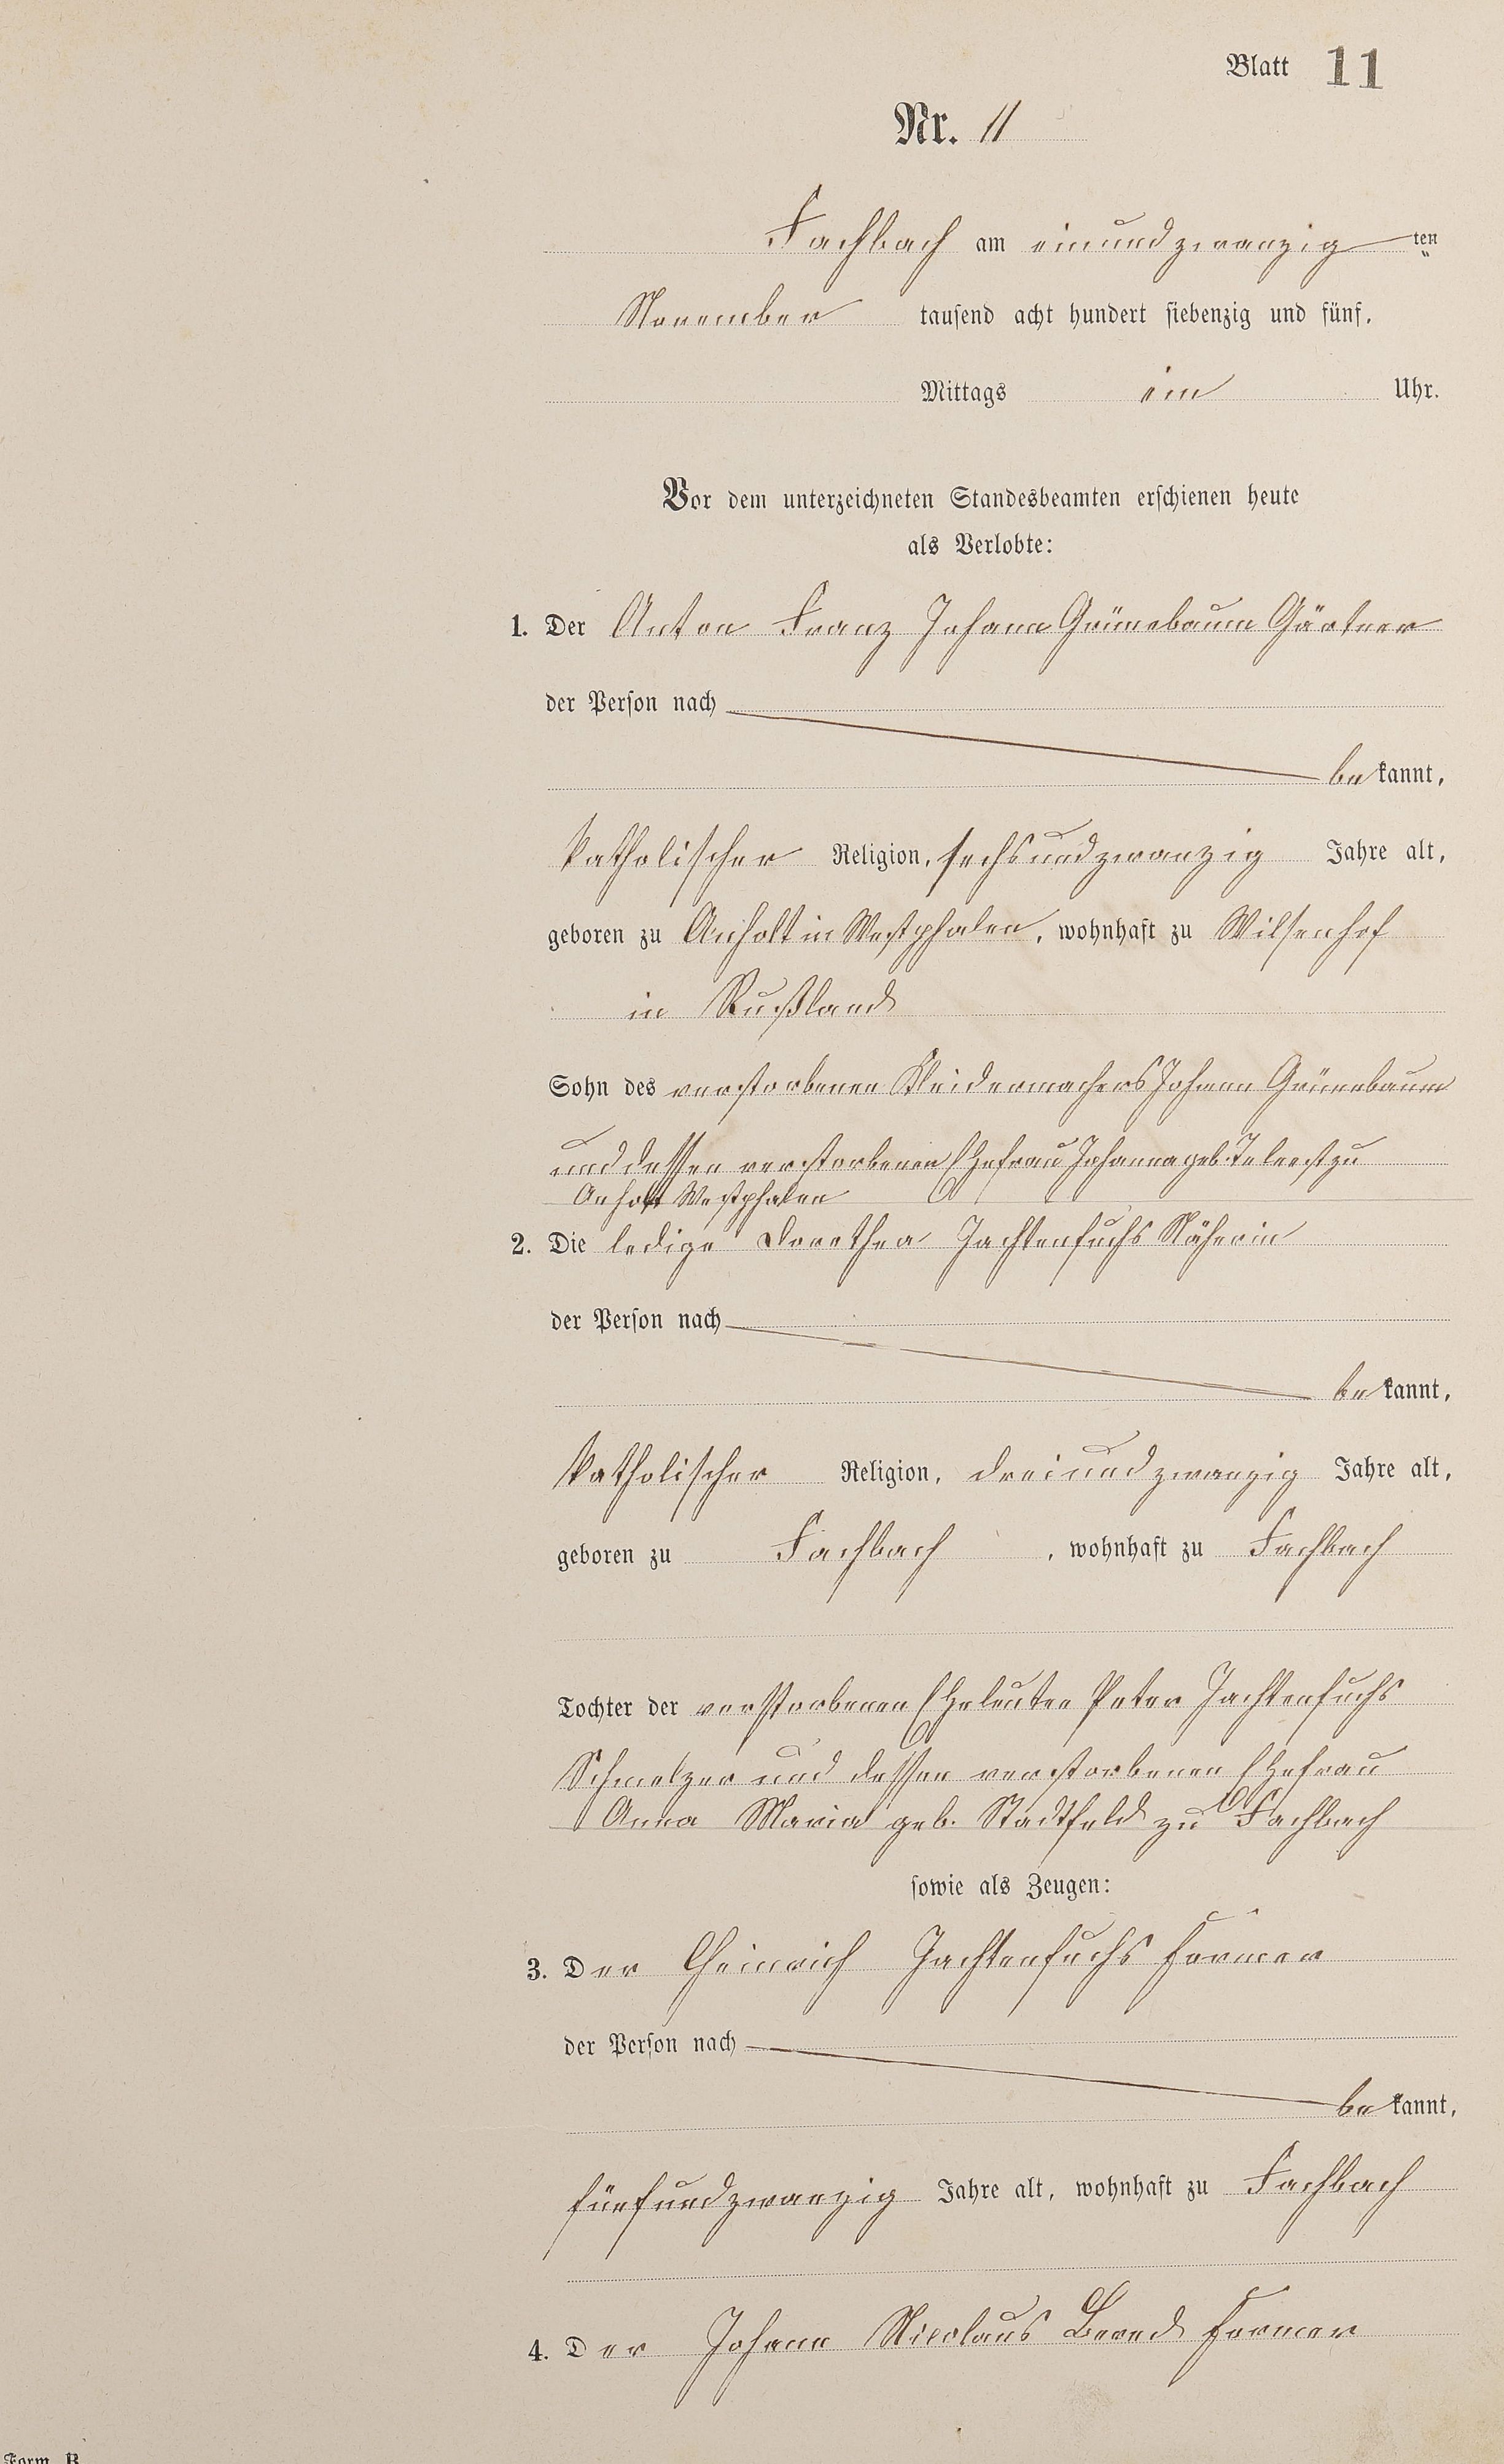 Blatt 11
Nr. 11
Fachbach am einundzwanzig ten
November tausend acht hundert siebenzig und fünf,
Mittags ein Uhr.
Vor dem unterzeichneten Standesbeamten erschienen heute
als Verlobte:
1. Der Anton Franz Johann Grünebaum Gärtner
der Person nach
bekannt,
katholischer Religion, sechsundzwanzig Jahre alt,
geboren zu Anholt in Westphalen, wohnhaft zu Wilsenhof
in Rußland
Sohn des verstorbenen Kleidermachers Johann Grünebaum
und dessen verstorbenen Ehefrau Johanna geb. zu
Anholt Westphalen
2. Die ledige Dorothea Jachtenfuchs Näherin
der Person nach
bekannt,
katholischer Religion, dreiundzwanzig Jahre alt,
geboren zu Fachbach, wohnhaft zu Fachbach
Tochter der verstorbenen Eheleuten Peter Jachtenfuchs
Schmelzer und dessen verstorbenen Ehefrau
Anna Maria geb. Stadtfeld zu Fachbach
sowie als Zeugen:
3. Der Heinrich Jachtenfuchs Former
der Person nach
bekannt,
fünfundzwanzig Jahre alt, wohnhaft zu Fachbach
4. Der Johann Nicolaus Bernd Former
Form. B